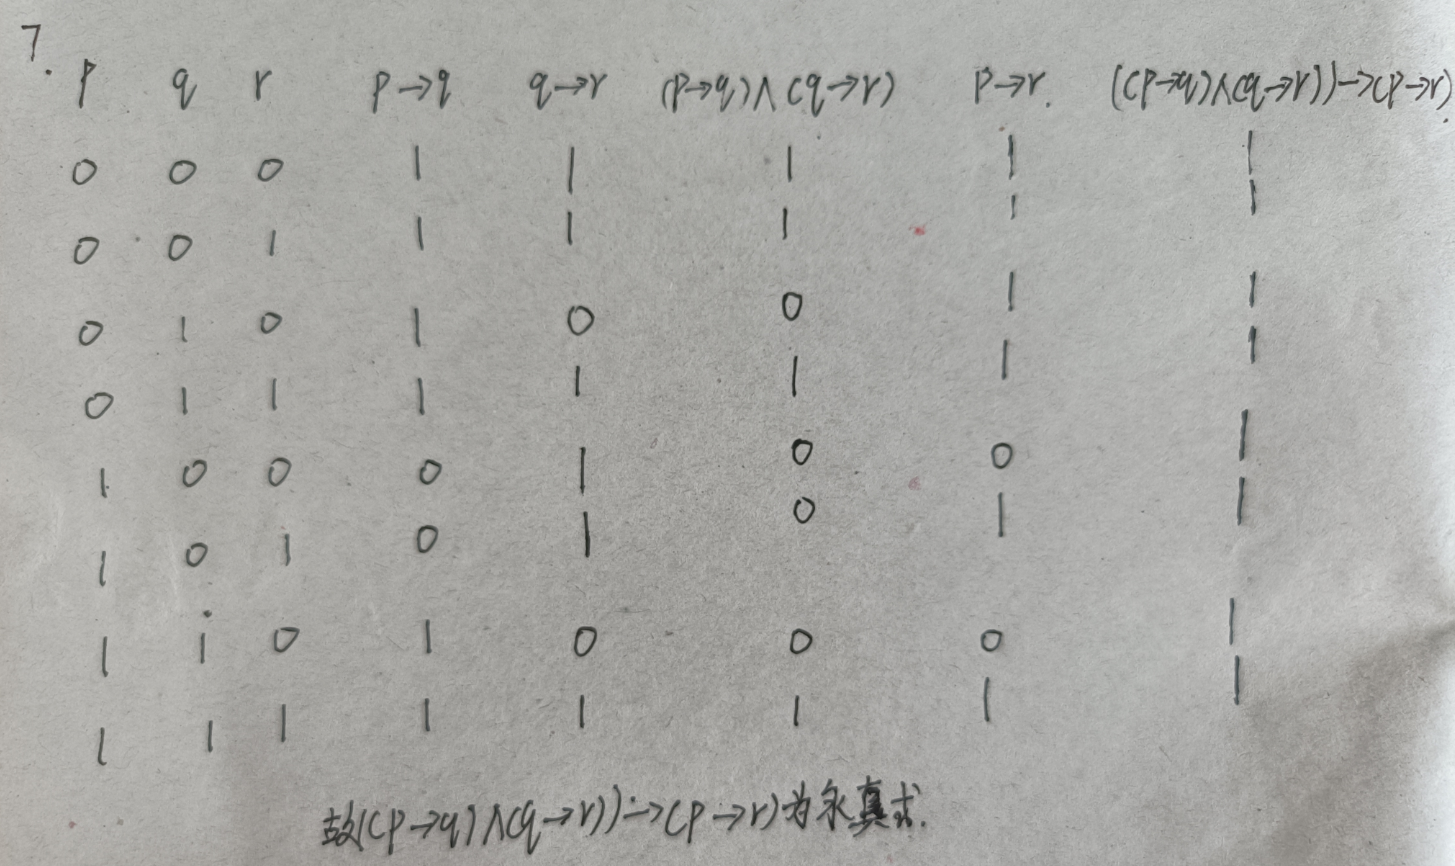 7.
p q r p→q q→r (p→q)∧(q→r) p→r. ((p→q)∧(q→r))→(p→r).
0 0 0 1 1 1 1 1
0 0 1 1 1 1 1 1
0 1 0 1 0 0 1 1
0 1 1 1 1 1 1 1
1 0 0 0 1 0 0 1
1 0 1 0 1 0 1 1
1 1 0 1 0 0 0 1
1 1 1 1 1 1 1 1
故((p→q)∧(q→r))→(p→r)为永真式.